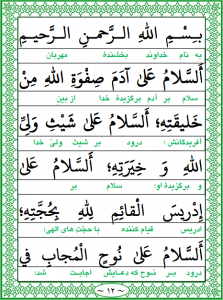 بِسْمِ اللهِ الرَّحْمنِ الرَّحیمِ
به نام خداوند بخشندهٔ مهربان
أَلسَّلامُ عَلىٰ آدَمَ صِفْوَةِ اللهِ مِنْ
سلام بر آدم برگزیدهٔ خدا از بین
خَلیقَتِهِ؛ أَلسَّلامُ عَلىٰ شَیْثٍ وَلِیِّ
آفریدگانش؛ درود بر شیث ولیّ خدا
اللهِ وَ خِیَرَتِهِ؛ أَلسَّلامُ عَلىٰ
و برگزیدهٔ او؛ سلام بر
إِدْریسَ الْقائِمِ لِلّٰهِ بِحُجَّتِهِ؛
ادریس قیام کننده با حجّت های الهی؛
أَلسَّلامُ عَلىٰ نُوحٍ الْمُجابِ في
درود بر نوح که دعایش اجابت شد؛
~ ۱۲ ~